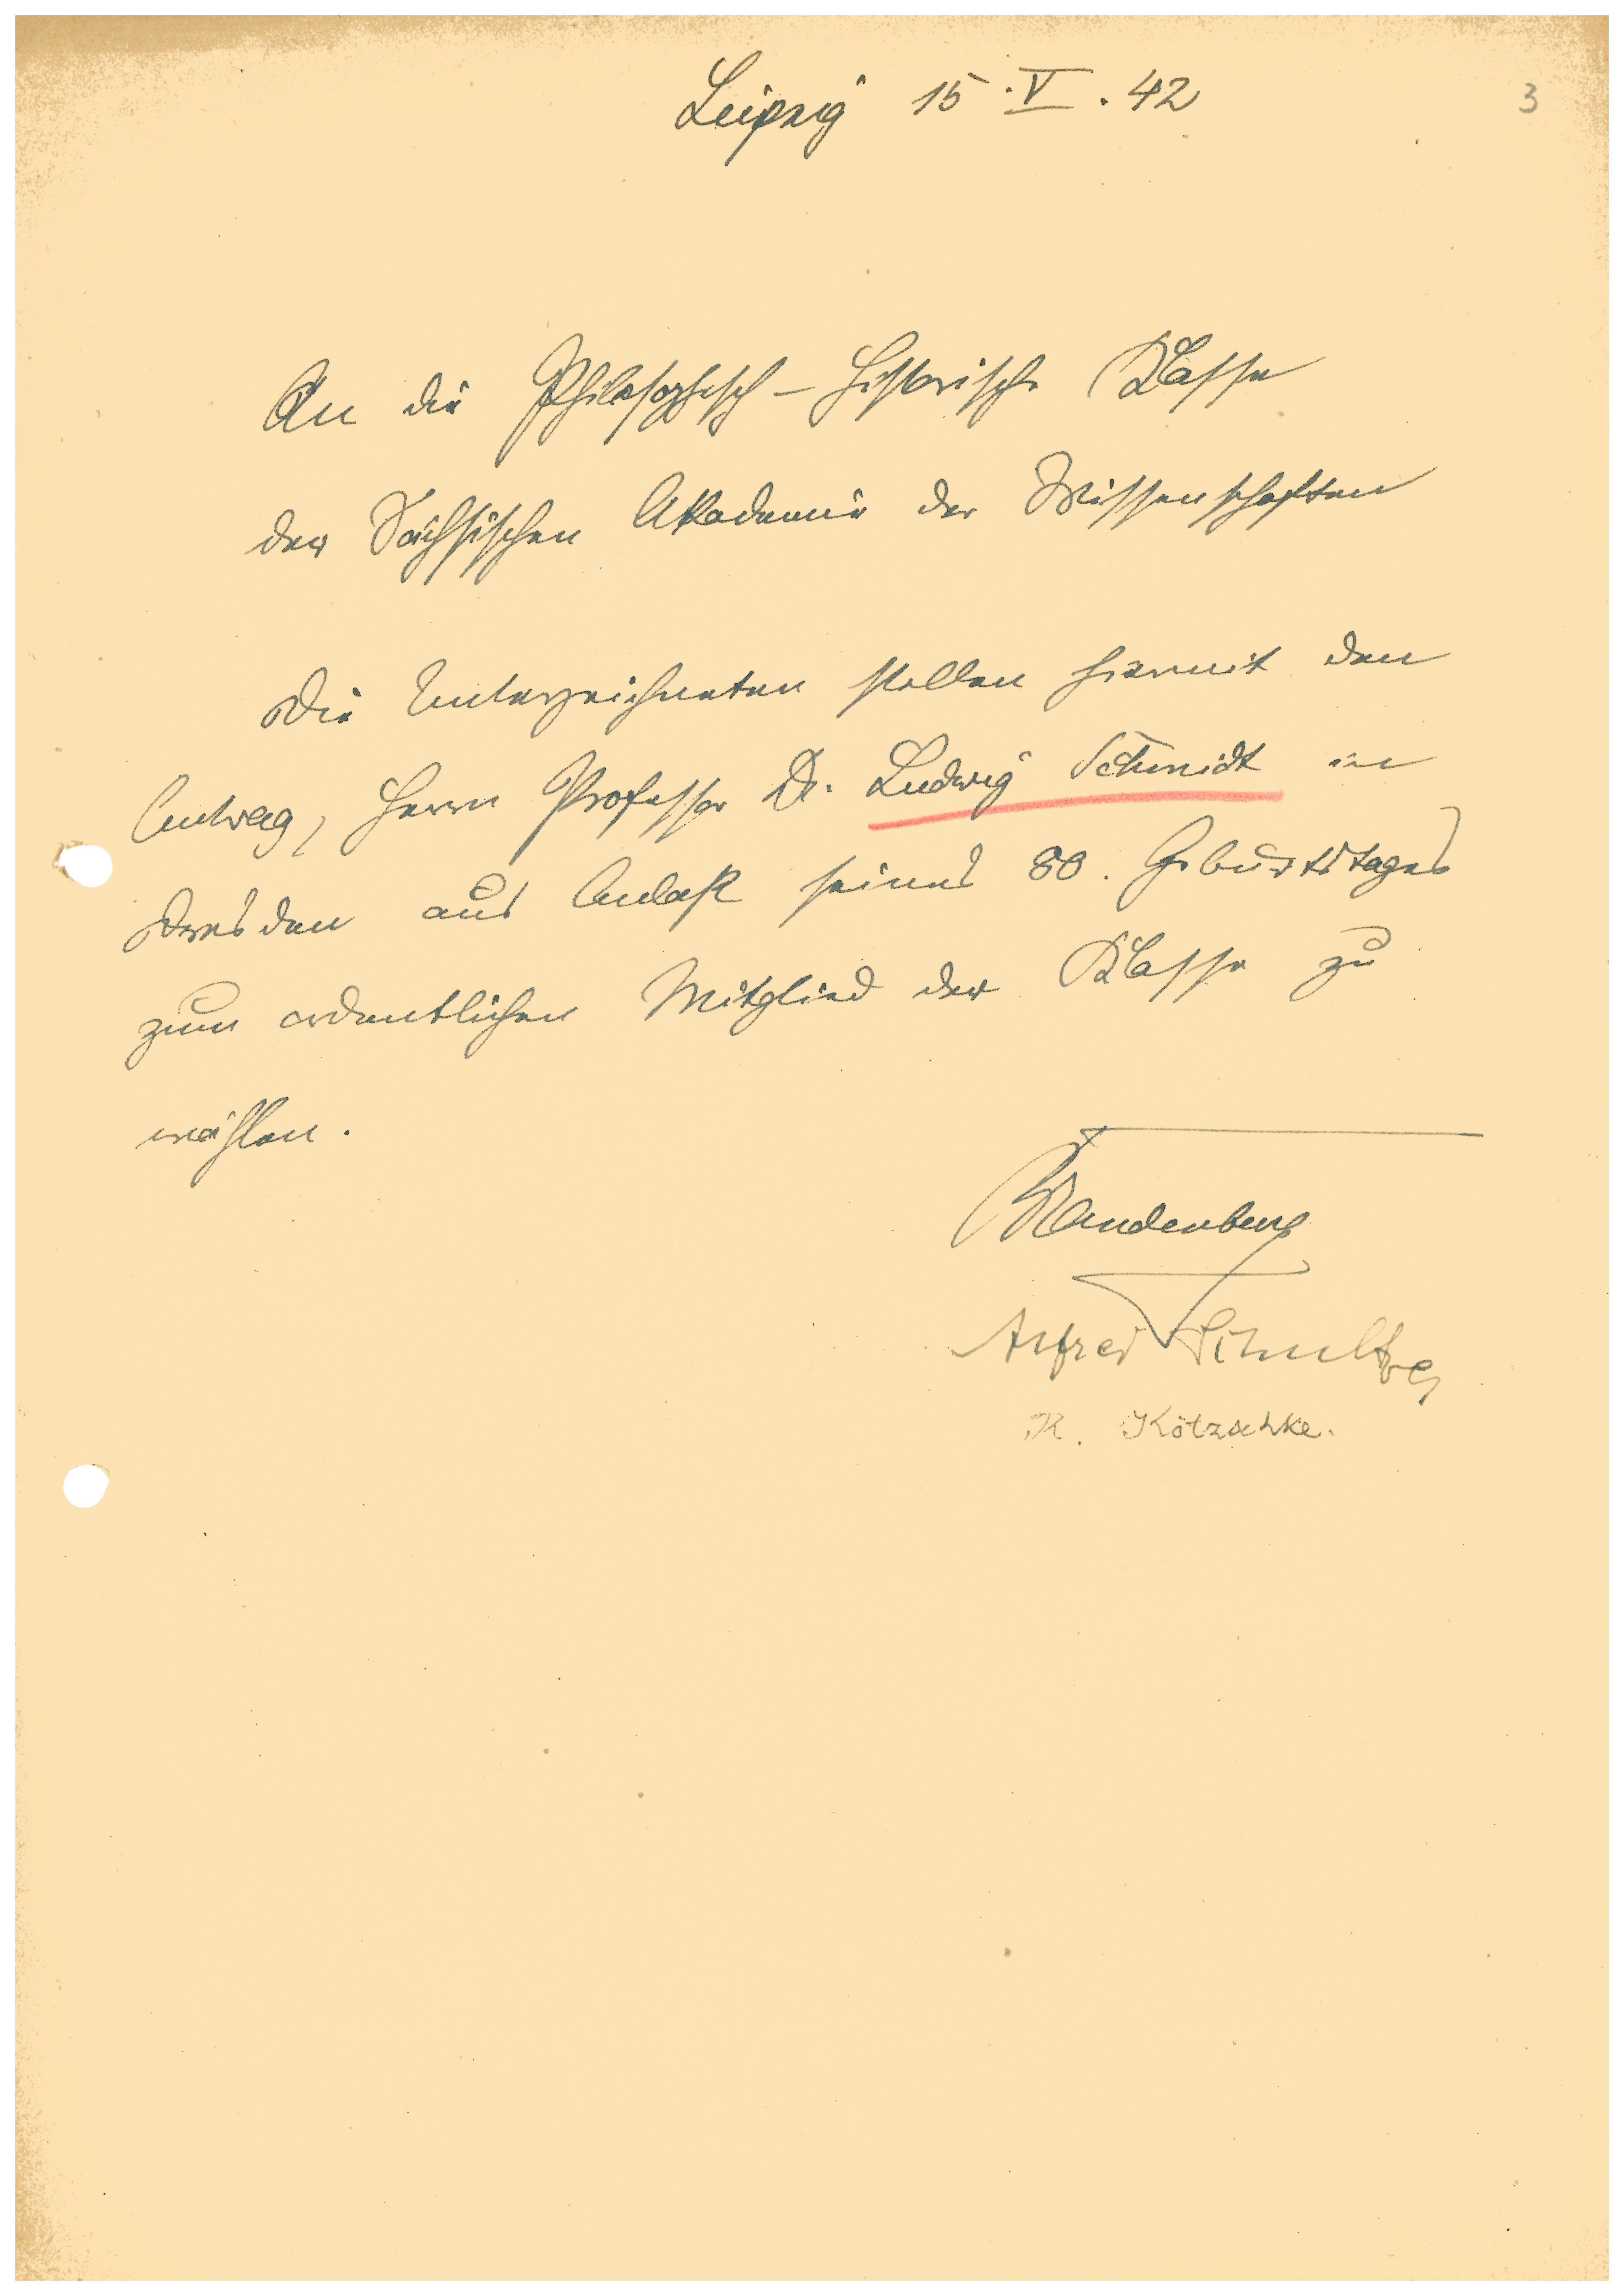 3
Leipzig 15.V.42
An die Philosophisch-Historische Klasse
der Sächsischen Akademie der Wissenschaften
Die Unterzeichneten stellen hiermit den
Antrag, Herrn Professor Dr. Ludwig Schmidt in
Dresden aus Anlaß seines 80. Geburtstages
zum ordentlichen Mitglied der Klasse zu
wählen.
Brandenburg
Alfred Schultze
R. Kötzschke.